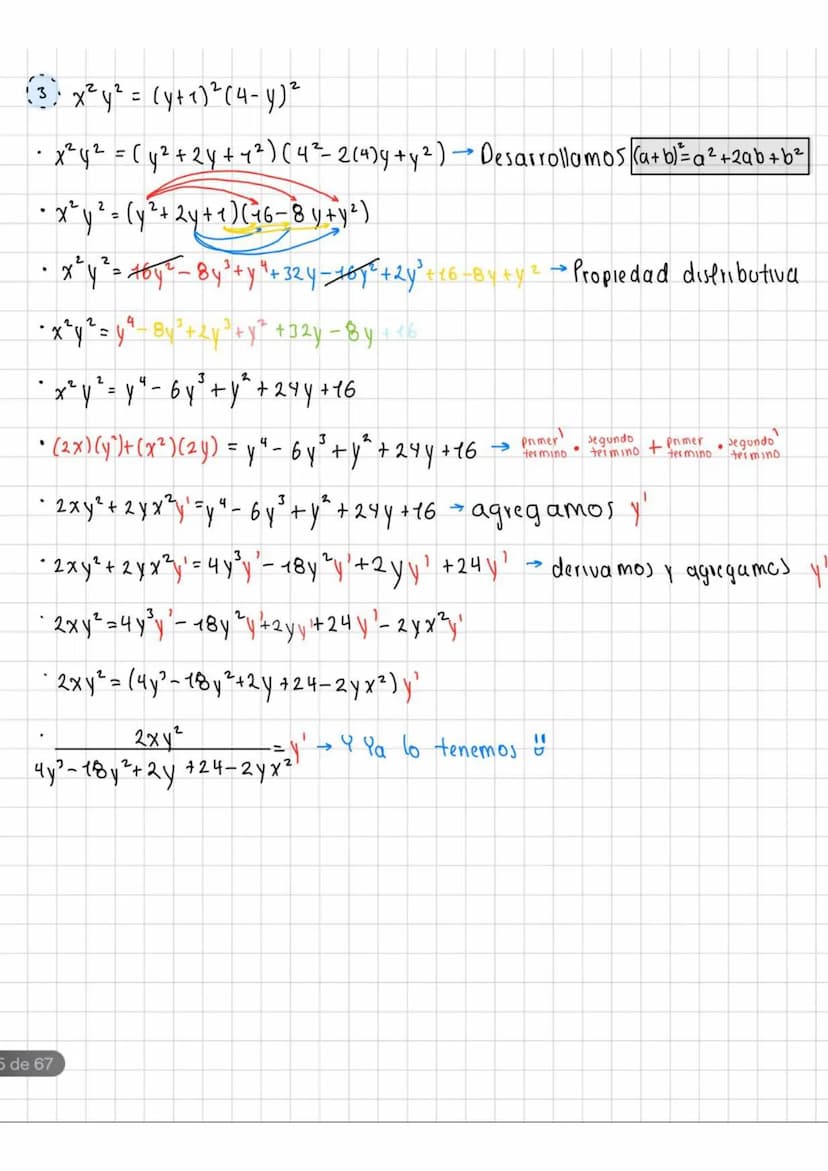 3 x²y² = (y+1)²(4-y)²
· x²y² = (y²+2y+1²)(4²-2(4)y+y²) → Desarrollamos (a+b)²=a²+2ab+b²
· x²y² = (y²+2y+1)(16-8y+y²)
· x²y² = 16y²-8y³+y⁴+32y-16y²+2y³+16-8y+y² → Propiedad distributiva
· x²y² = y⁴-8y³+2y³+y²+32y-8y+16
· x²y² = y⁴-6y³+y²+24y+16
· (2x)(y²)+(x²)(2y) = y⁴-6y³+y²+24y+16 → primer' termino · segundo termino + primer termino · segundo' termino
· 2xy²+2yx²y' = y⁴-6y³+y²+24y+16 → agregamos y'
· 2xy²+2yx²y' = 4y³y'-18y²y'+2yy'+24y' → derivamos y agregamos y'
· 2xy² = 4y³y'-18y²y'+2yy'+24y'-2yx²y'
· 2xy² = (4y³-18y²+2y+24-2yx²)y'
· 2xy²
4y³-18y²+2y+24-2yx² = y' → Y Ya lo tenemos !!
5 de 67